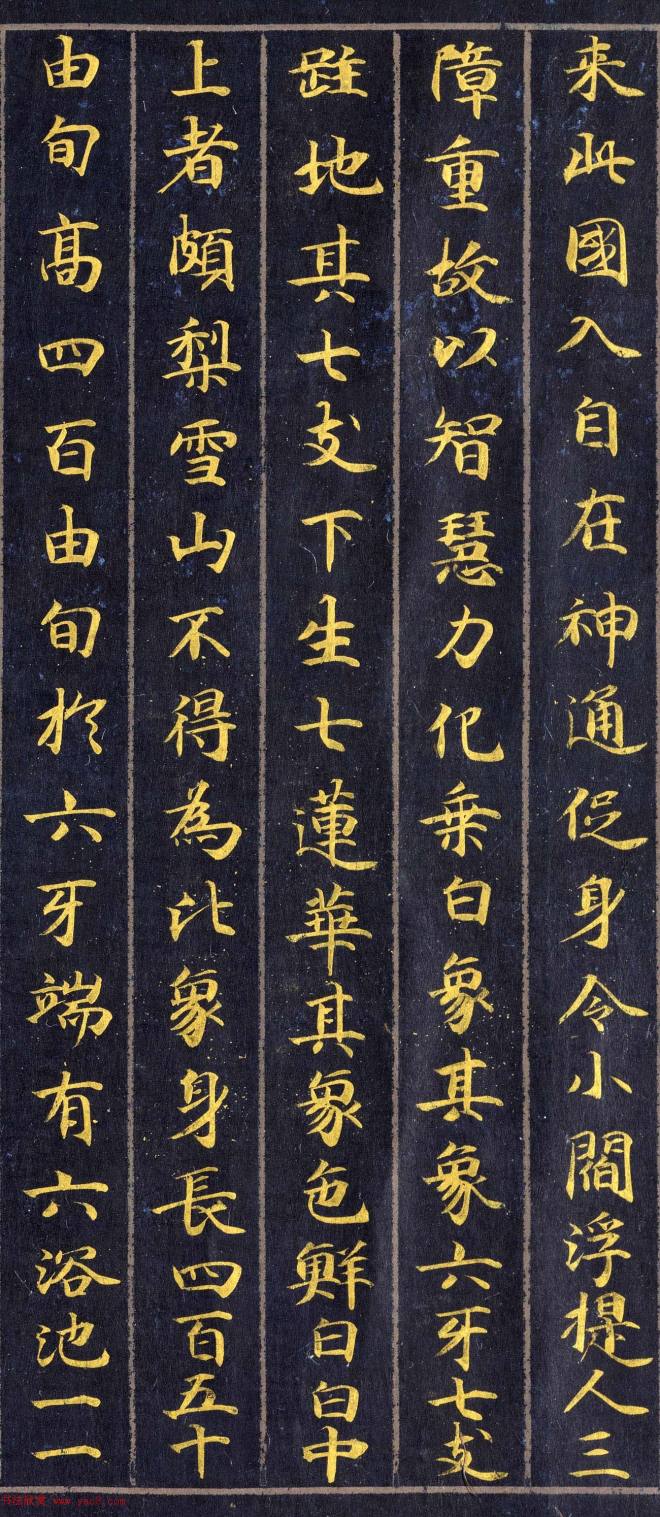 来此國入自在神通促身令小閻浮提人三
障重故以智慧力化乗白象其象六牙七支
跓地其七支下生七蓮華其象色鮮白白中
上者頗梨雪山不得為比象身長四百五十
由旬髙四百由旬於六牙端有六浴池一一
书法欣赏 www.yac8.com